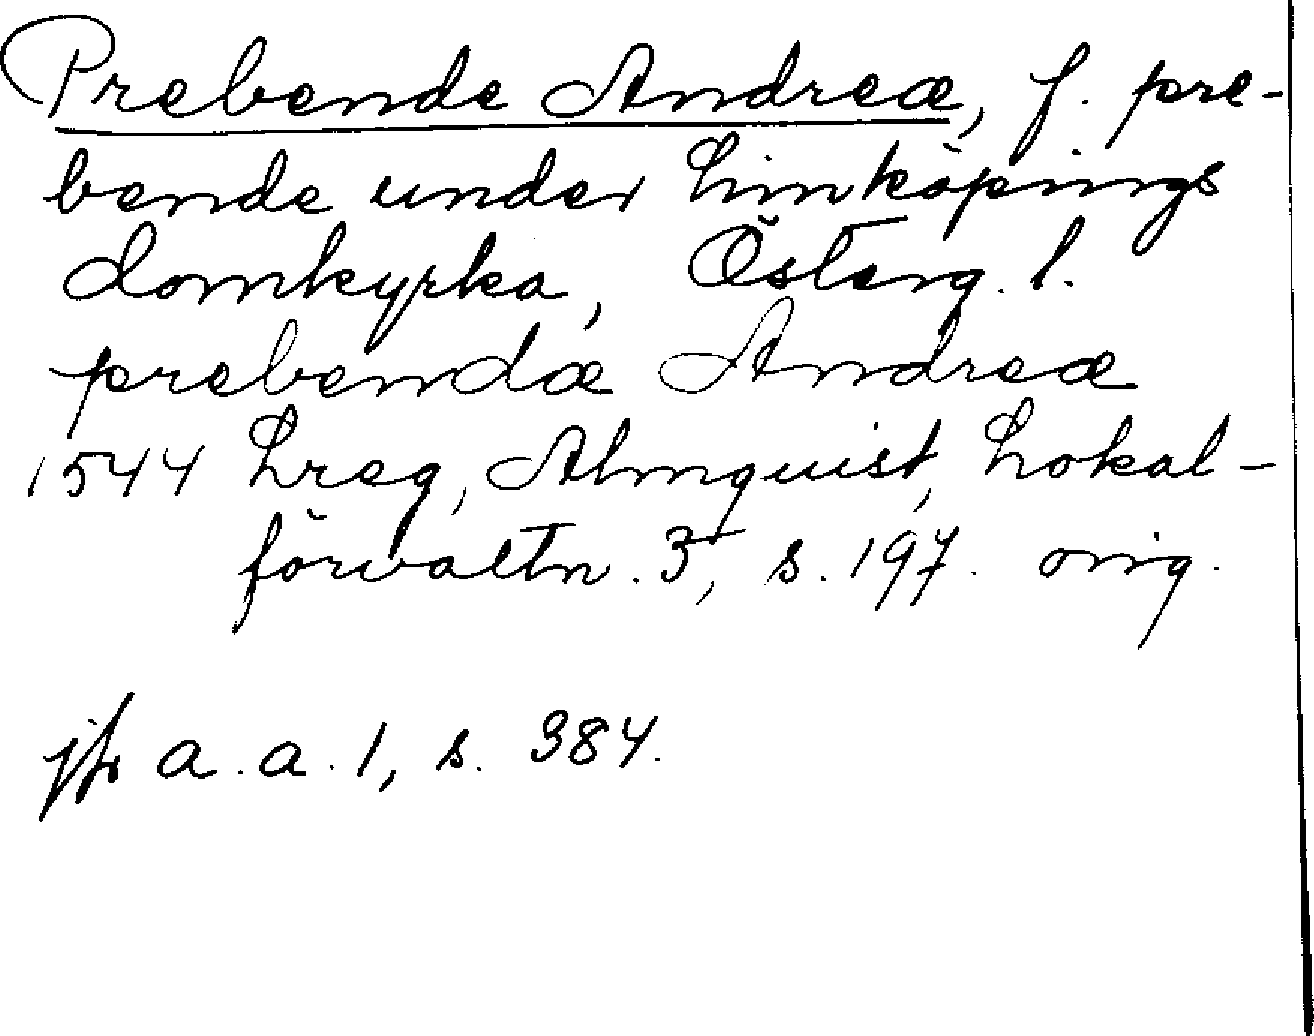 Prebende Andreæ, f. pre-
bende under Linköpings
domkyrka, Österg. l.
prebendæ Andreæ
1544 Lreg, Almquist, Lokal-
förvaltn. 3, s. 197. orig.
jfr a. a. 1, s. 384.